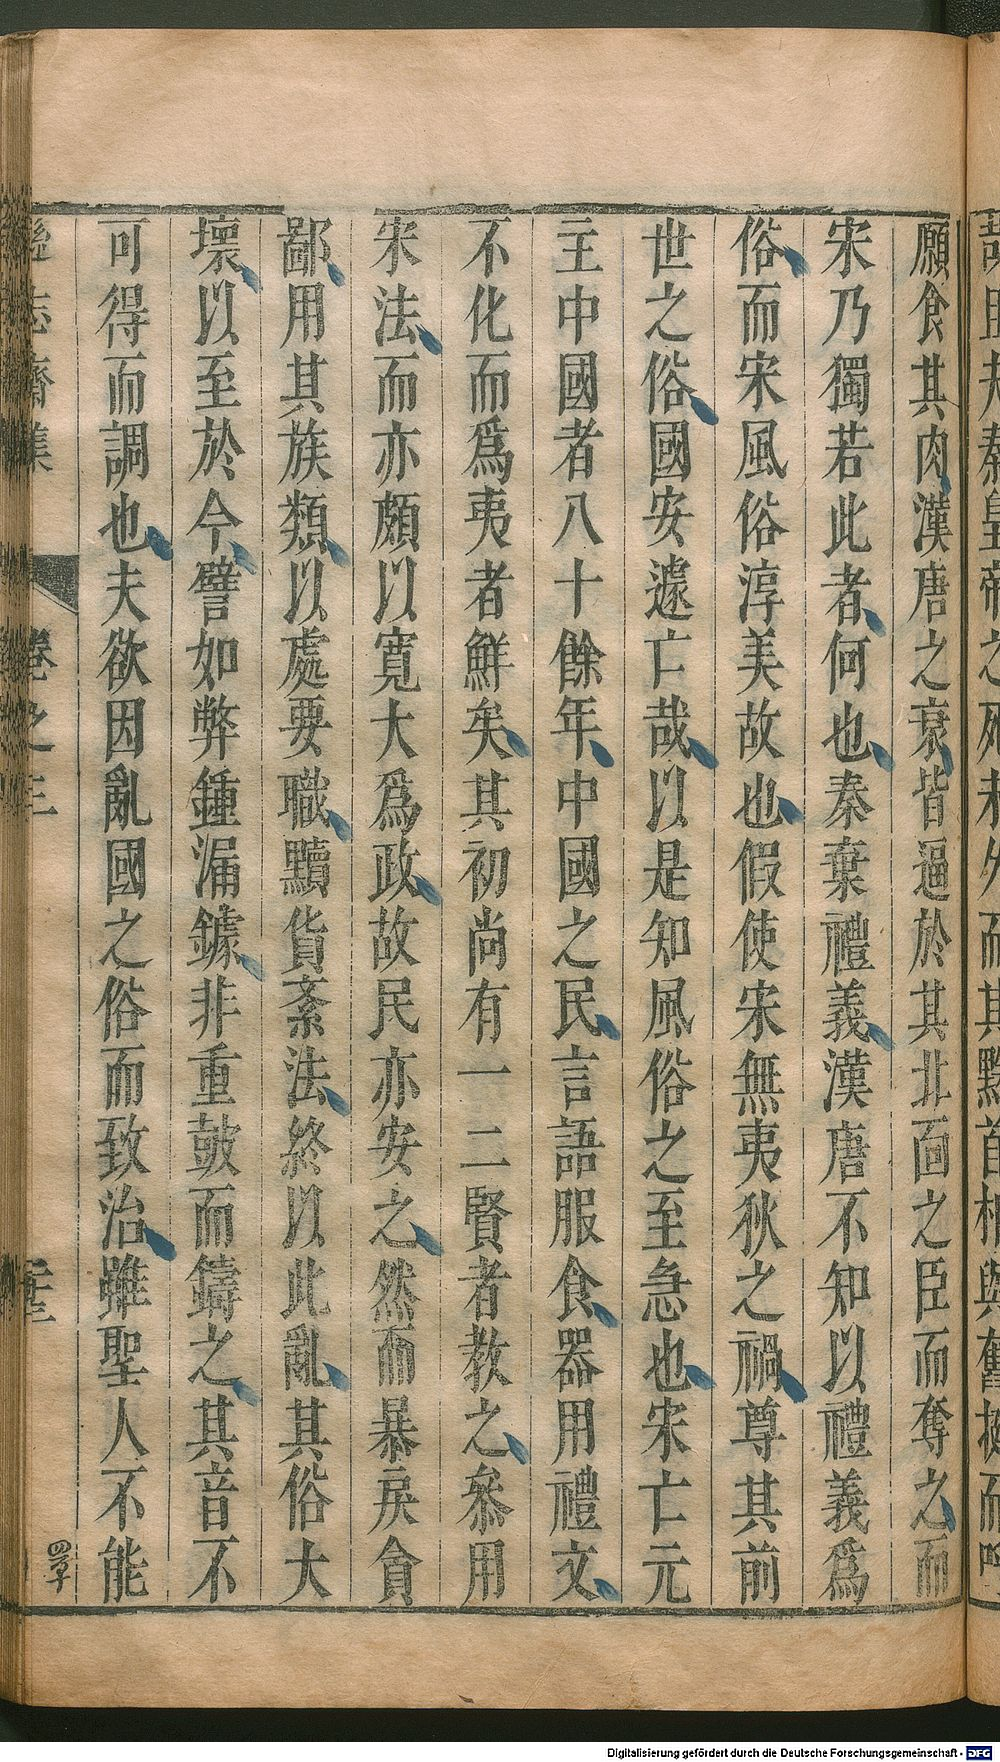 願食其肉漢唐之衰皆逼於其北面之臣而奪之而
宋乃獨若此者何也秦棄禮義漢唐不知以禮義爲
俗而宋風俗淳美故也假使宋無夷狄之禍尊其前
世之俗國安遽亡哉以是知風俗之至急也宋亡元
主中國者八十餘年中國之民言語服食器用禮文
不化而爲夷者鮮矣其初尚有一二賢者教之叅用
宋法而亦頗以寬大爲政故民亦安之然而暴戾貪
鄙用其族類以處要職黷貨紊法終以此亂其俗大
壞以至於今譬如弊鍾漏鐻非重鼓而鑄之其音不
可得而調也夫欲因亂國之俗而致治雖聖人不能
遜志齋集 卷之三
Digitalisierung gefördert durch die Deutsche Forschungsgemeinschaft - DFG